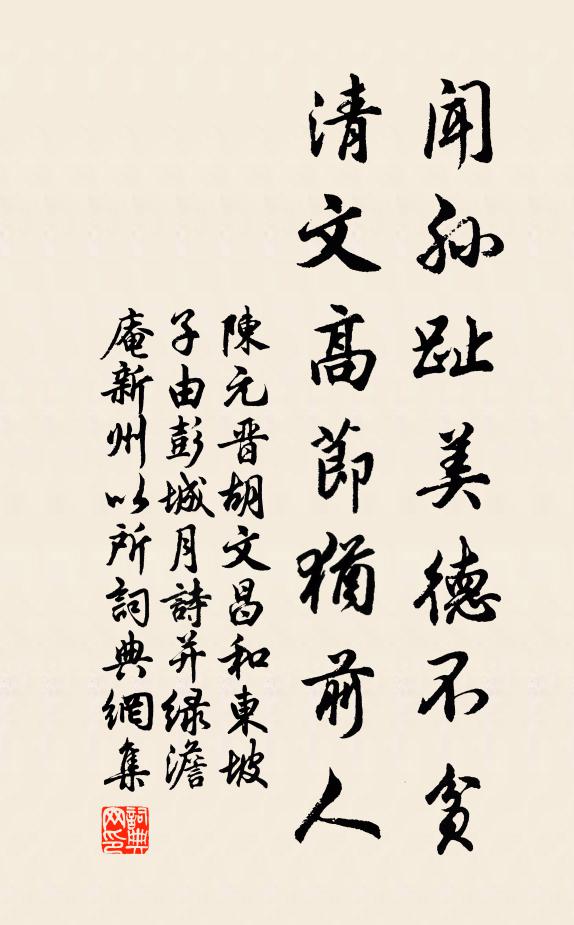 聞孫趾美德不貧
清文高節猶前人
陳元晋胡文昌和東坡
子由彭城月詩并緑澹
庵新州以所詞典網集
詞典
网印